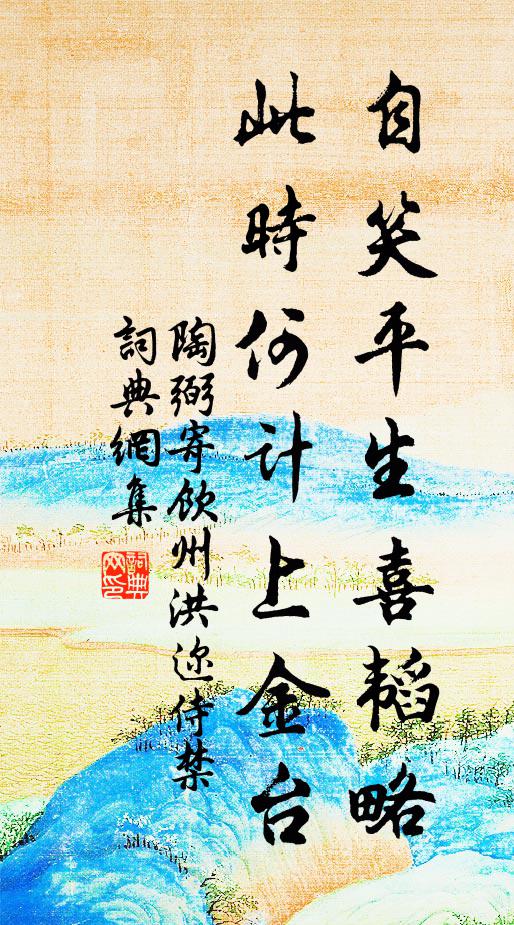 自笑平生喜韬略
此時何计上金台
陶弼寄飲州洪迩侍禁
詞典網集
詞典